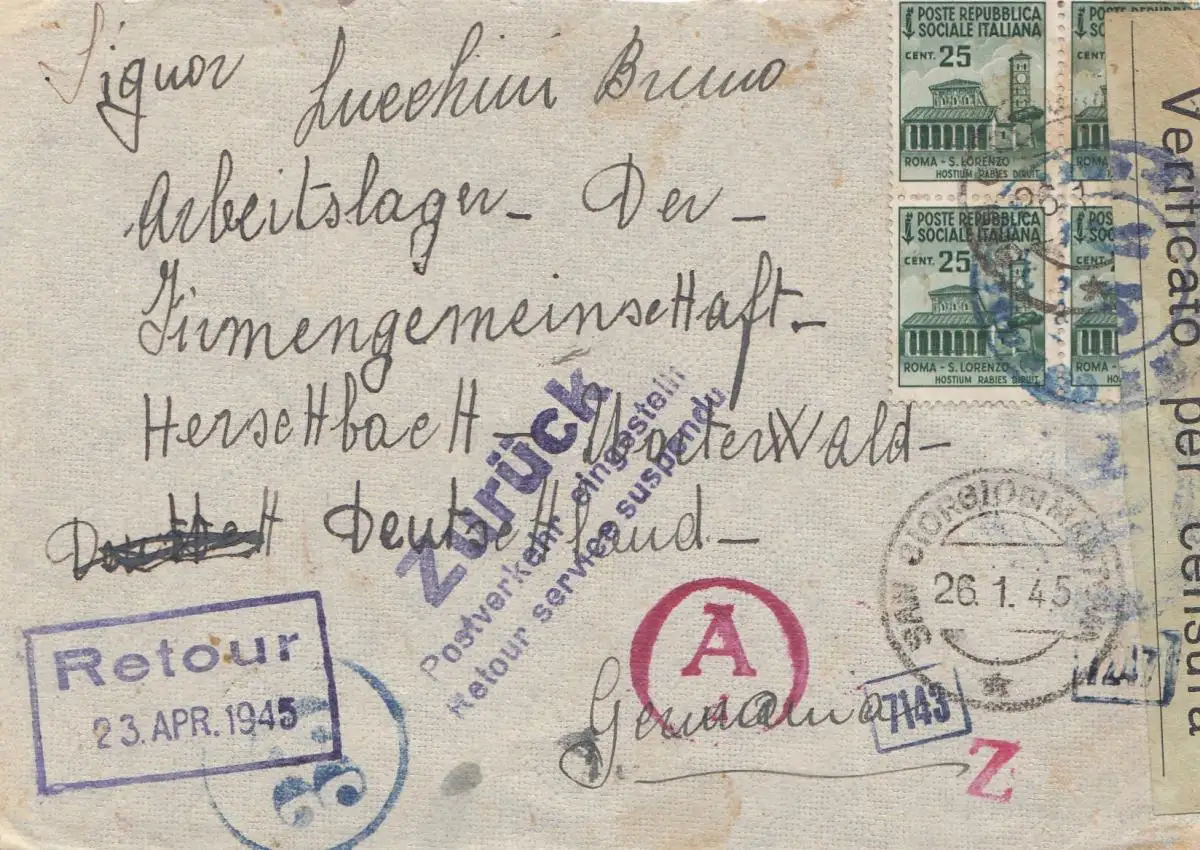 Signor Lucchini Bruno
Arbeitslager - Der -
Firmengemeinschaft -
Herschbach - Unterwald -
Deutschland -
Germania
POSTE REPUBBLICA
SOCIALE ITALIANA
CENT. 25
ROMA - S. LORENZO
HOSTIUM RABIES DIRUIT
POSTE REPUBBLICA
SOCIALE ITALIANA
CENT. 25
ROMA - S. LORENZO
HOSTIUM RABIES DIRUIT
Verificato per censura
Zurück
Postverkehr eingestellt
Retour service suspendu
Retour
23. APR. 1945
A
SAN GIORGIO
26.1.45
7143
Z